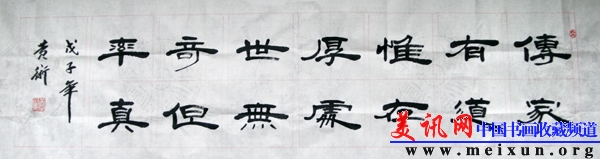 傳家
有道
惟存
厚處
世無
奇但
率真
戊子年
美讯网
中国书画收藏频道
www.meixun.org